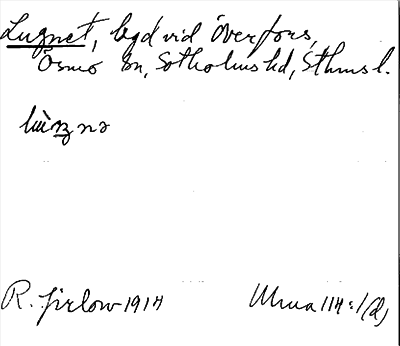 Lugnet, lgd vid Överfors,
Ösmo sn, Sotholms hd, Sthms l.
R. Jirlow 1914
Uhua 114:1(d)